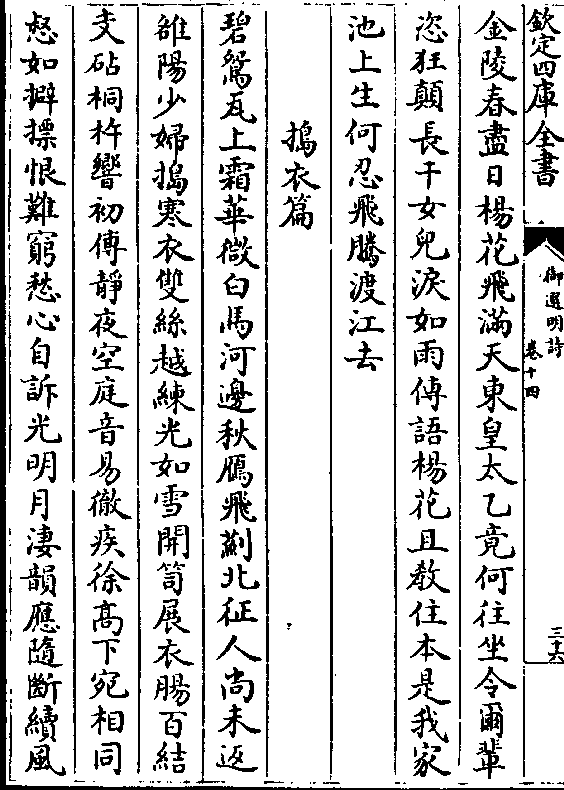 欽定四庫全書
御選明詩
卷十四
三十六
金陵春盡日楊花飛滿天東皇太乙竟何往坐令爾輩
恣狂顛長干女兒淚如雨傳語楊花且教住本是我家
池上生何忍飛騰渡江去
擣衣篇
碧鴛瓦上霜華微白馬河邊秋鴈飛薊北征人尚未返
雒陽少婦擣寒衣雙絲越練光如雪開笥展衣腸百結
文砧桐杵響初傳靜夜空庭音易徹疾徐高下宛相同
惄如擗摽恨難窮愁心自訴光明月淒韻應隨斷續風